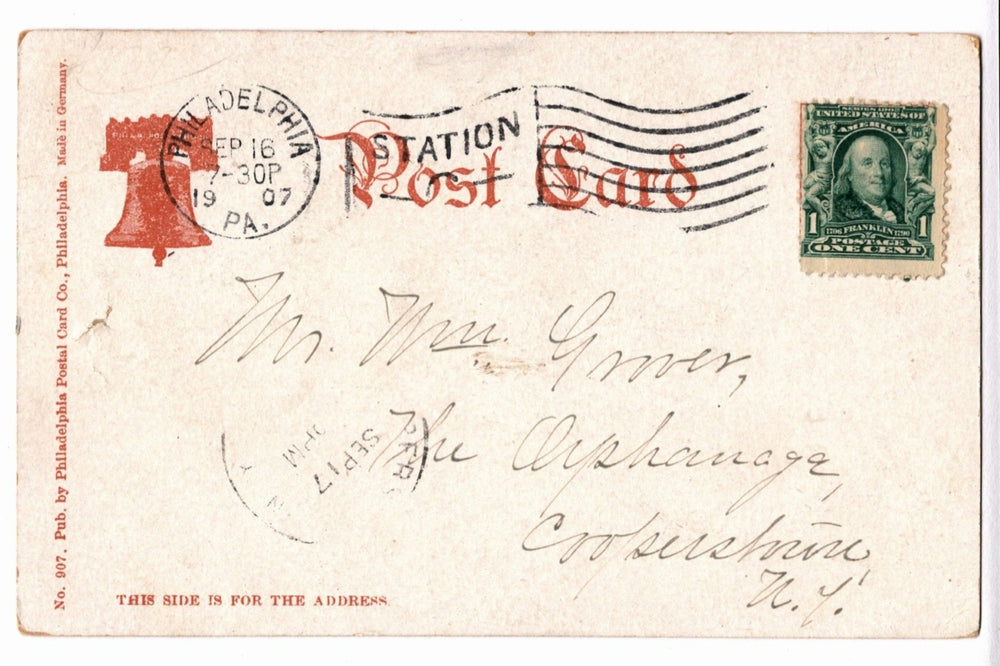 PHILADELPHIA
SEP 16
7-30P
19 07
PA.
STATION
Post Card
SERIES 1902
UNITED STATES OF
AMERICA
1 1
1706 FRANKLIN 1790
POSTAGE
ONE CENT
No. 907. Pub. by Philadelphia Postal Card Co., Philadelphia. Made in Germany.
Mr. Wm. Grover,
The Orphanage,
Cooperstown,
N.Y.
SEP 17
PM
THIS SIDE IS FOR THE ADDRESS.